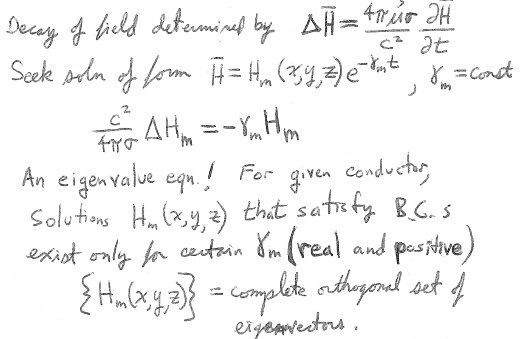 Decay of field determined by ΔH̄ = 4πμσ/c² ∂H̄/∂t
Seek soln of form H̄ = Hₘ(x,y,z)e^(-γₘt), γₘ = const
c²/4πσ ΔHₘ = -γₘHₘ
An eigenvalue eqn.! For given conductor,
solutions Hₘ(x,y,z) that satisfy B.C.s
exist only for certain γₘ (real and positive)
{Hₘ(x,y,z)} = complete orthogonal set of
eigenvectors.